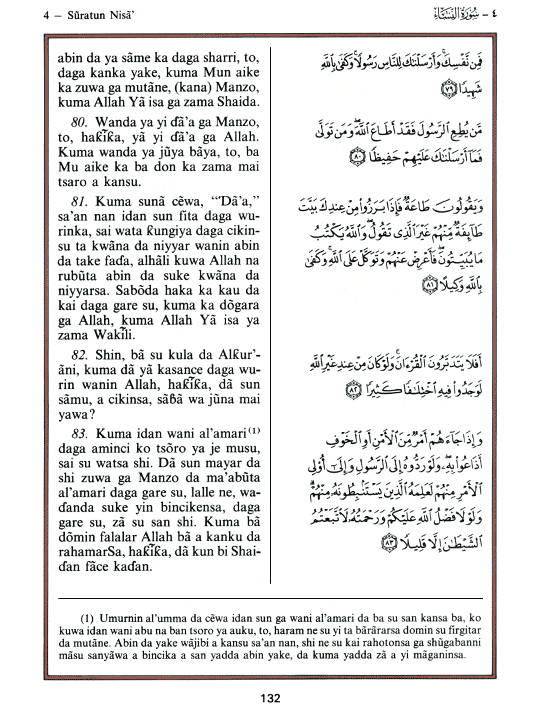 4 – Sūratun Nisā’
٤ – سُورَةُ النِّسَاء
abin da ya sāme ka daga sharri, to,
daga kanka yake, kuma Mun aike
ka zuwa ga mutāne, (kana) Manzo,
kuma Allah Yā isa ga zama Shaida.
80. Wanda ya yi ɗā’a ga Manzo,
to, haƙīƙa, yā yi ɗā’a ga Allah.
Kuma wanda ya jūya bāya, to, ba
Mu aike ka ba don ka zama mai
tsaro a kansu.
81. Kuma sunā cēwa, “Ɗā’a,”
sa’an nan idan sun fita daga wu-
rinka, sai wata ƙungiya daga cikin-
su ta kwāna da niyyar wanin abin
da take faɗa, alhāli kuwa Allah na
rubūta abin da suke kwāna da
niyyarsa. Sabōda haka ka kau da
kai daga gare su, kuma ka dōgara
ga Allah, kuma Allah Yā isa ya
zama Wakīli.
82. Shin, bā su kula da Alƙur’-
āni, kuma dā yā kasance daga wu-
rin wanin Allah, haƙīƙa, dā sun
sāmu, a cikinsa, sāɓā wa jūna mai
yawa?
83. Kuma idan wani al’amari(1)
daga aminci ko tsōro ya je musu,
sai su watsa shi. Dā sun mayar da
shi zuwa ga Manzo da ma’abūta
al’amari daga gare su, lalle ne, wa-
ɗanda suke yin bincikensa, daga
gare su, zā su san shi. Kuma bā
dōmin falalar Allah bā a kanku da
rahamarSa, haƙīƙa, dā kun bi Shai-
ɗan fāce kaɗan.
فَمِن نَّفْسِكَ وَأَرْسَلْنَاكَ لِلنَّاسِ رَسُولًا وَكَفَىٰ بِاللَّهِ
شَهِيدًا ﴿٧٩﴾
مَّن يُطِعِ الرَّسُولَ فَقَدْ أَطَاعَ اللَّهَ وَمَن تَوَلَّىٰ
فَمَا أَرْسَلْنَاكَ عَلَيْهِمْ حَفِيظًا ﴿٨٠﴾
وَيَقُولُونَ طَاعَةٌ فَإِذَا بَرَزُوا مِنْ عِندِكَ بَيَّتَ
طَائِفَةٌ مِّنْهُمْ غَيْرَ الَّذِي تَقُولُ وَاللَّهُ يَكْتُبُ
مَا يُبَيِّتُونَ فَأَعْرِضْ عَنْهُمْ وَتَوَكَّلْ عَلَى اللَّهِ وَكَفَىٰ
بِاللَّهِ وَكِيلًا ﴿٨١﴾
أَفَلَا يَتَدَبَّرُونَ الْقُرْآنَ وَلَوْ كَانَ مِنْ عِندِ غَيْرِ اللَّهِ
لَوَجَدُوا فِيهِ اخْتِلَافًا كَثِيرًا ﴿٨٢﴾
وَإِذَا جَاءَهُمْ أَمْرٌ مِّنَ الْأَمْنِ أَوِ الْخَوْفِ
أَذَاعُوا بِهِ وَلَوْ رَدُّوهُ إِلَى الرَّسُولِ وَإِلَىٰ أُولِي
الْأَمْرِ مِنْهُمْ لَعَلِمَهُ الَّذِينَ يَسْتَنبِطُونَهُ مِنْهُمْ
وَلَوْلَا فَضْلُ اللَّهِ عَلَيْكُمْ وَرَحْمَتُهُ لَاتَّبَعْتُمُ
الشَّيْطَانَ إِلَّا قَلِيلًا ﴿٨٣﴾
(1) Umurnin al’umma da cēwa idan sun ga wani al’amari da ba su san kansa ba, ko
kuwa idan wani abu na ban tsoro ya auku, to, haram ne su yi ta bārārarsa domin su firgitar
da mutāne. Abin da yake wājibi a kansu sa’an nan, shi ne su kai rahotonsa ga shūgabanni
māsu sanyāwa a bincika a san yadda abin yake, da kuma yadda zā a yi māganinsa.
132